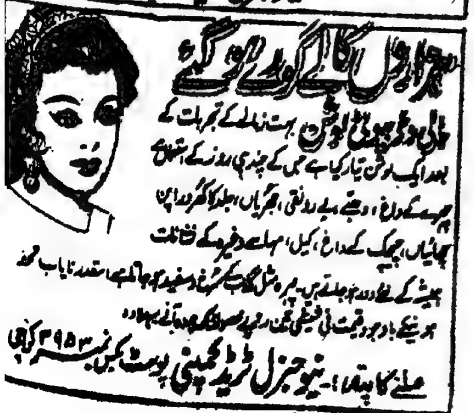 ہزاروں کالے گورے ہو گئے
ماڈل بیوٹی لوشن بہت زمانے کے تجربات کے
بعد ایک لوشن تیار کیا ہے جس کے چند ہی روز کے استعمال سے
چہرے کے داغ، دھبے، بے رونقی، جھریاں، جلد کا کھردرا پن
چھائیاں، چیچک کے داغ، کیل، مہاسے وغیرہ کے نشانات
ہمیشہ کے لئے دور ہو جاتے ہیں۔ چہرہ مثل گلاب کے سرخ و سفید ہو جاتا ہے، اسقدر نایاب تحفہ
ہونیکے باوجود قیمت فی شیشی تین روپے محصولڈاک چودہ آنے علاوہ
ملنے کا پتہ:۔ نیو جنرل ٹریڈ کمپنی پوسٹ بکس نمبر ۳۹۵۳ کراچی